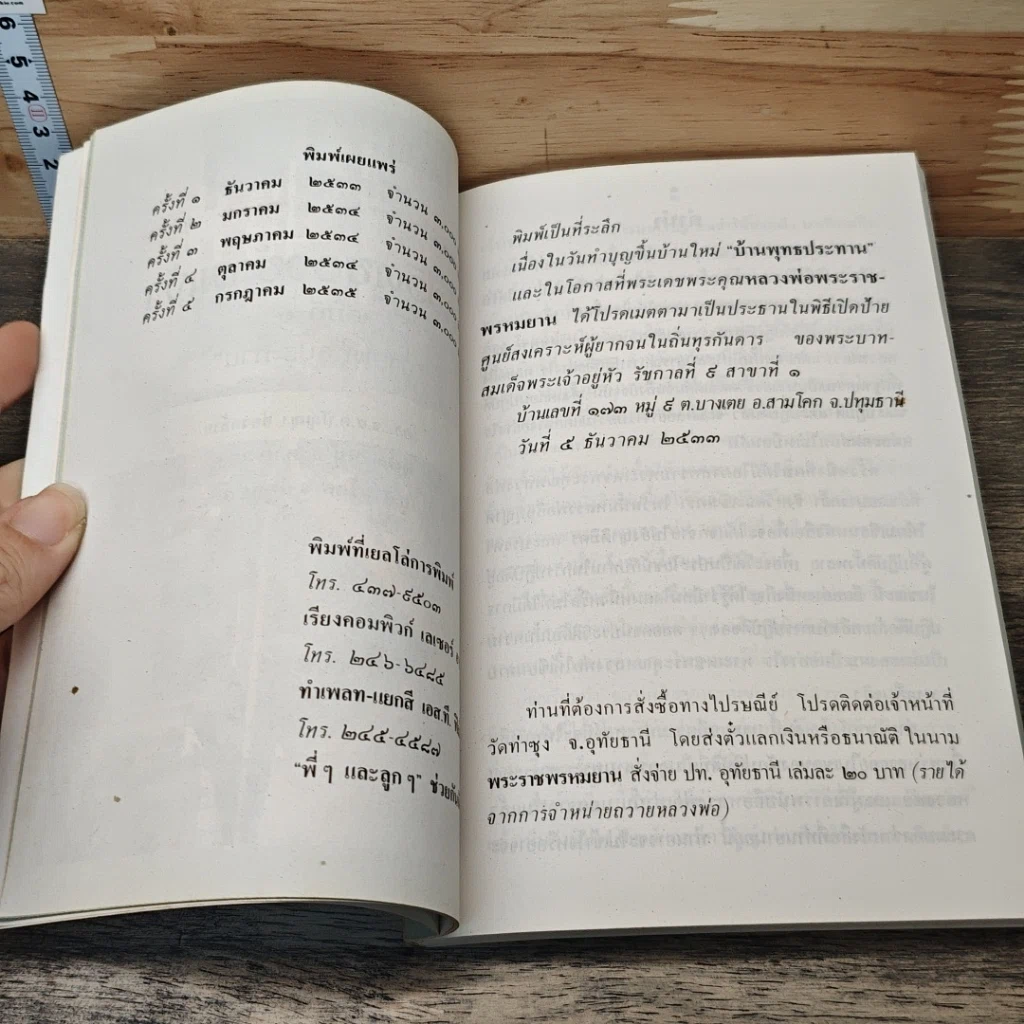 พิมพ์เผยแพร่
ครั้งที่ ๑ ธันวาคม ๒๕๓๓ จำนวน ๓,๐๐๐
ครั้งที่ ๒ มกราคม ๒๕๓๔ จำนวน ๓,๐๐๐
ครั้งที่ ๓ พฤษภาคม ๒๕๓๔ จำนวน ๓,๐๐๐
ครั้งที่ ๔ ตุลาคม ๒๕๓๔ จำนวน ๓,๐๐๐
ครั้งที่ ๕ กรกฎาคม ๒๕๓๕ จำนวน ๓,๐๐๐
พิมพ์ที่เยลโล่การพิมพ์
โทร. ๔๓๗-๙๕๐๓
เรียงคอมพิวก์ เลเซอร์
โทร. ๒๔๖-๖๔๘๕
ทำเพลท-แยกสี เอส.ที.
โทร. ๒๔๕-๔๕๘๗
"พี่ ๆ และลูก ๆ" ช่วยกัน
พิมพ์เป็นที่ระลึก
เนื่องในวันทำบุญขึ้นบ้านใหม่ "บ้านพุทธประทาน"
และในโอกาสที่พระเดชพระคุณหลวงพ่อพระราช-
พรหมยาน ได้โปรดเมตตามาเป็นประธานในพิธีเปิดป้าย
ศูนย์สงเคราะห์ผู้ยากจนในถิ่นทุรกันดาร ของพระบาท-
สมเด็จพระเจ้าอยู่หัว รัชกาลที่ ๙ สาขาที่ ๑
บ้านเลขที่ ๑๗๓ หมู่ ๙ ต.บางเตย อ.สามโคก จ.ปทุมธานี
วันที่ ๕ ธันวาคม ๒๕๓๓
ท่านที่ต้องการสั่งซื้อทางไปรษณีย์ โปรดติดต่อเจ้าหน้าที่
วัดท่าซุง จ.อุทัยธานี โดยส่งตั๋วแลกเงินหรือธนาณัติ ในนาม
พระราชพรหมยาน สั่งจ่าย ปท. อุทัยธานี เล่มละ ๒๐ บาท (รายได้
จากการจำหน่ายถวายหลวงพ่อ)
6
5
4
3
2